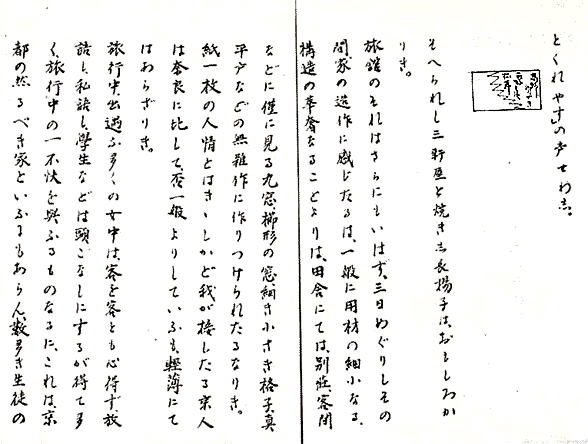 とくれやすの声せわし。
そへられし三軒亜と焼き玉長楊子は、おもしろか
りき。
旅館のそれはさらにもいはず、三日めぐりしその
間家の造作に感じたるは、一般に用材の細小なる、
構造の華奢なることよりは、田舎にては、別荘、客間
などに僅に見る丸窓櫛形の窓細き小さき格子真
平戸などの無雑作に作りつけられたるなりき。
紙一枚の人情とはきゝしかど我が接したる京人
は奈良に比して否一般よりしていふも、軽薄にて
はあらざりき。
旅行中出遇ふ多くの女中は、客を客とも心得ず、放
語し、私語し、学生などは頭ごなしにするが得て多
く、旅行中の一不快を与ふるものなるに、これは、京
都の然るべき家といふにもあらん数多き生徒の